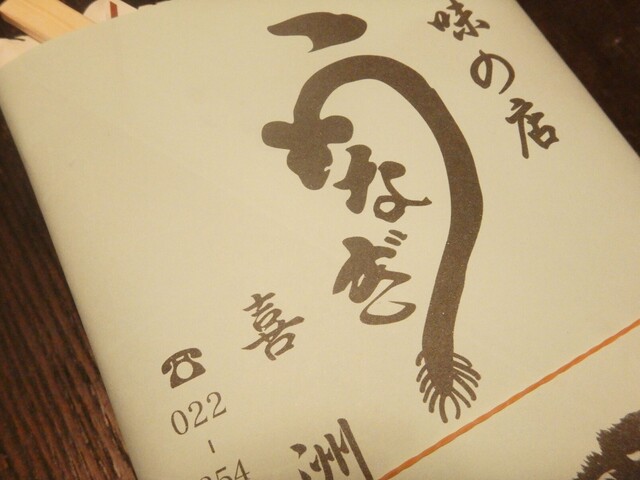 味の店
うなぎ
喜
洲
☎
022
-
254